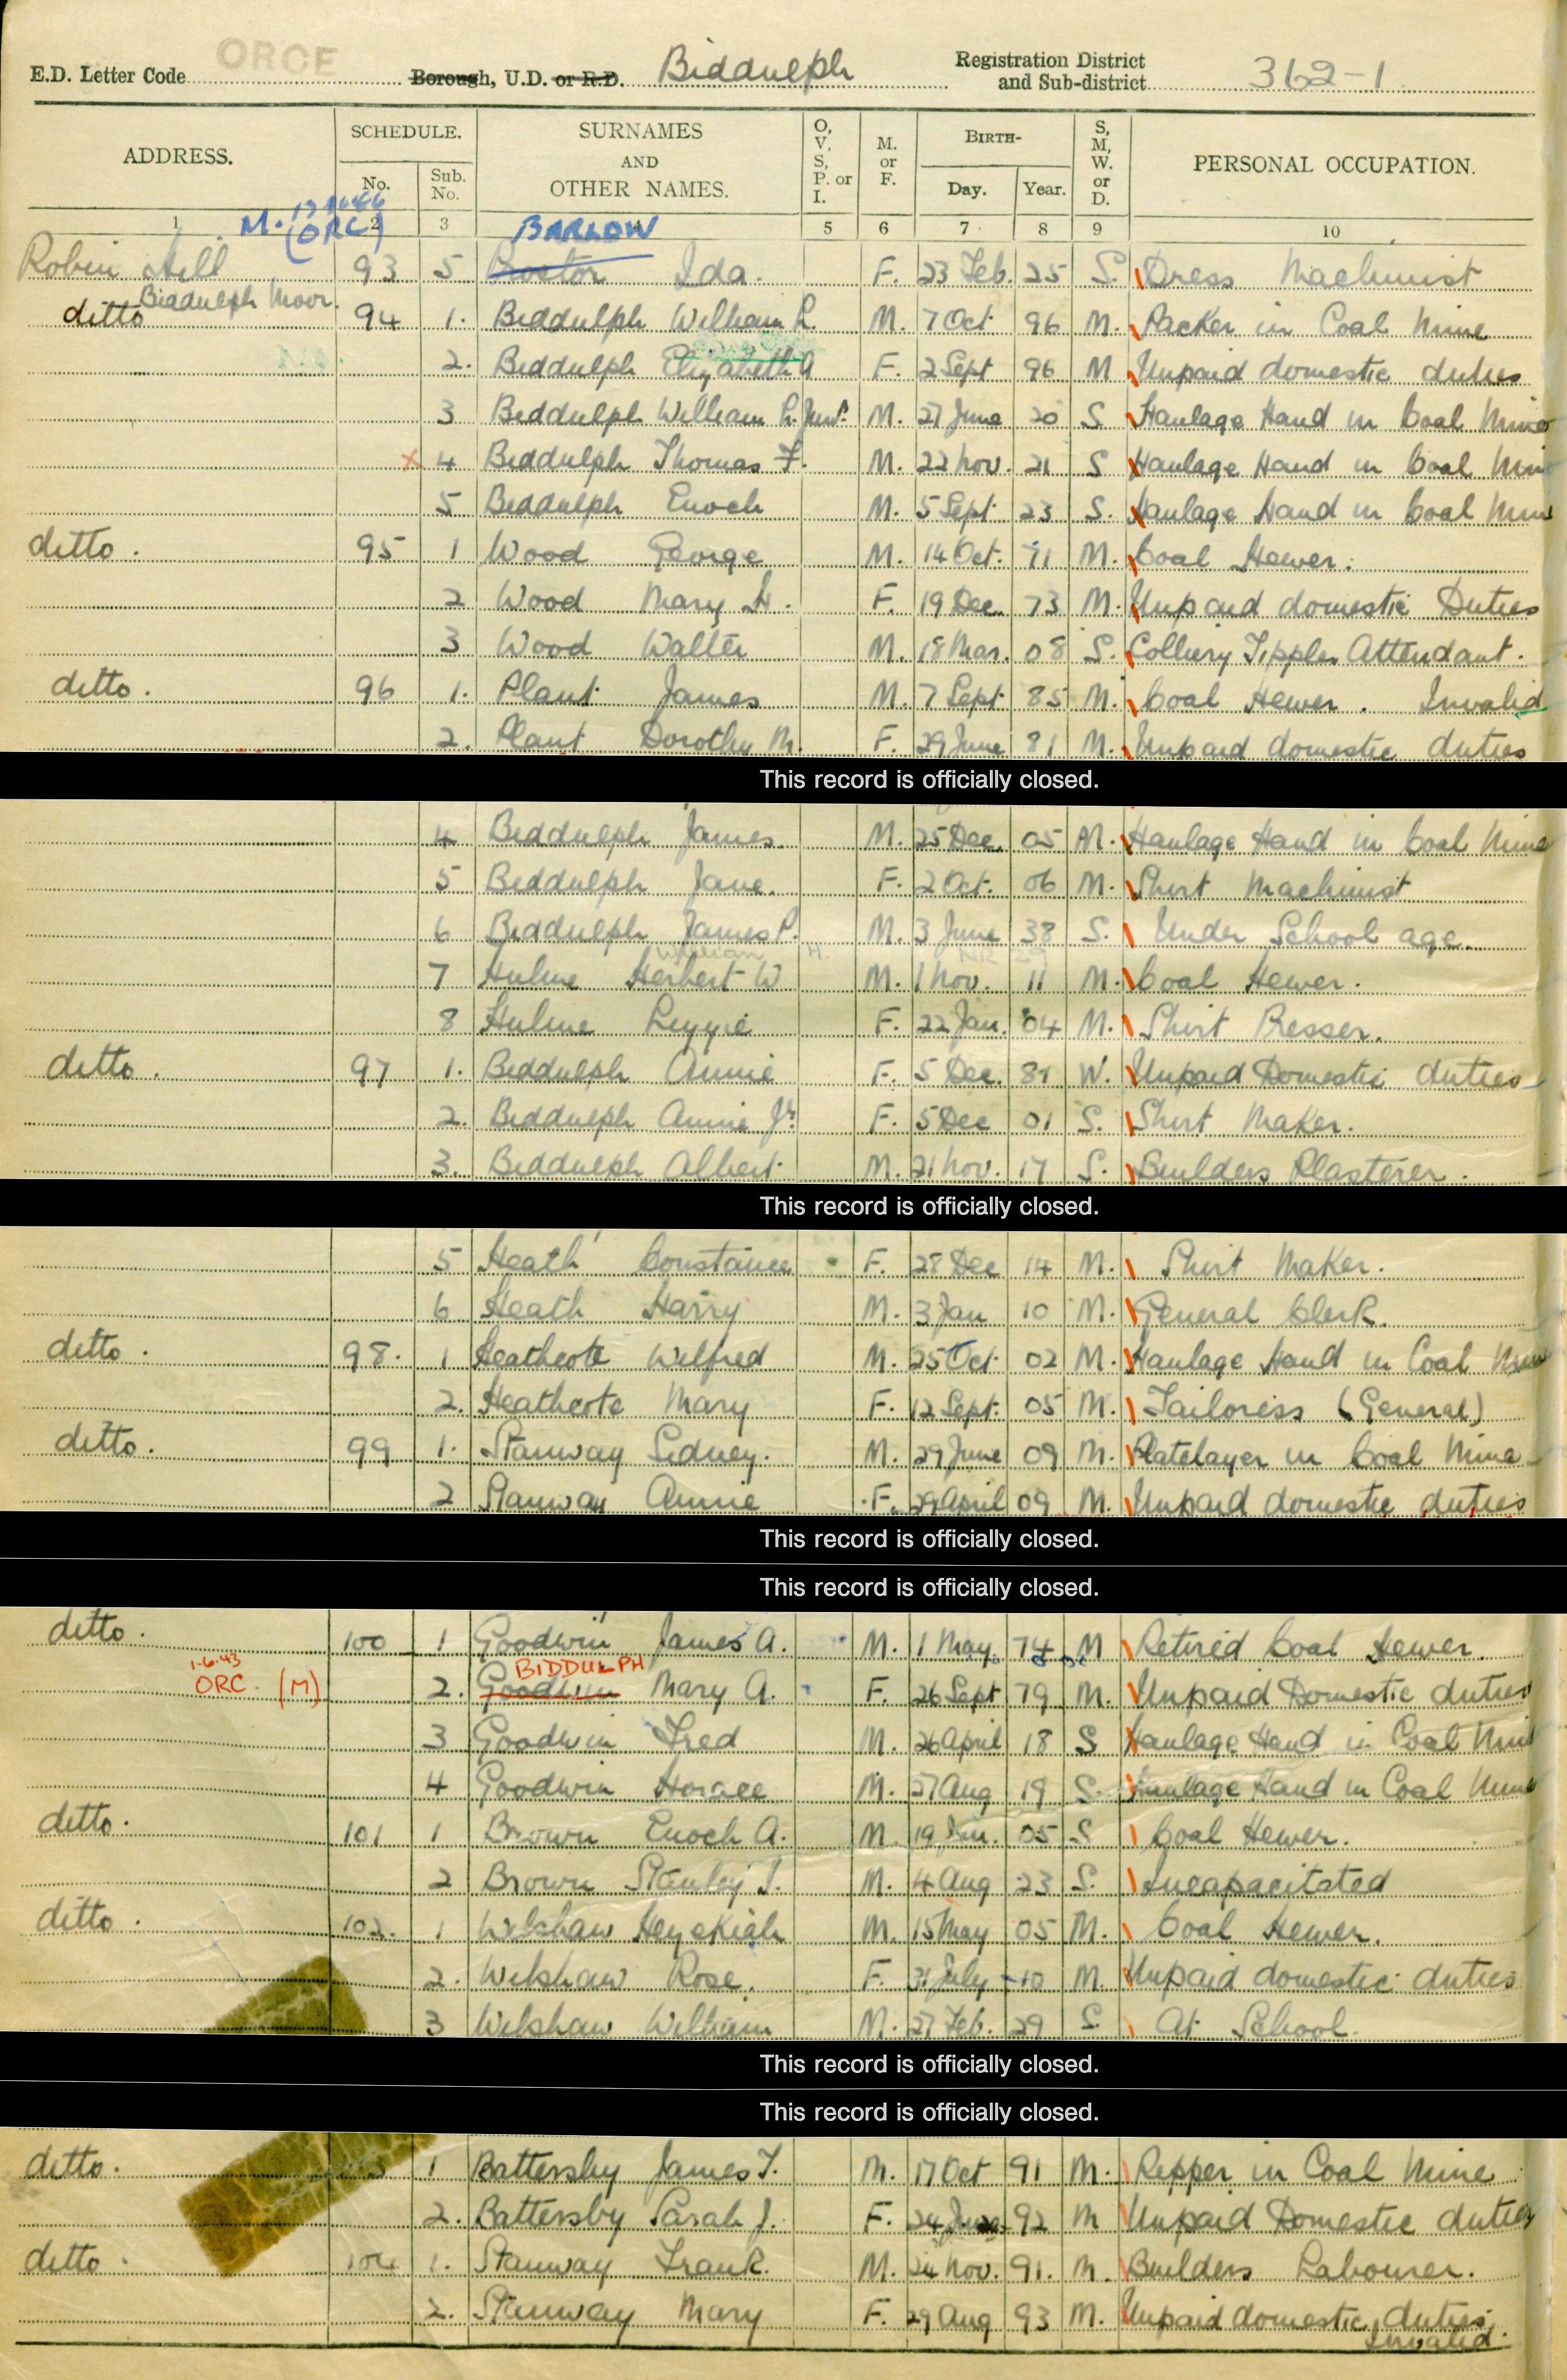 ORCE
E.D. Letter Code Borough, U.D. or R.D. Biddulph Registration District and Sub-district 362-1
ADDRESS. SCHEDULE. No. Sub. No. SURNAMES AND OTHER NAMES. O, V, S, P. or I. M. or F. BIRTH- Day. Year. S, M, W. or D. PERSONAL OCCUPATION.
1 2 3 4 5 6 7 8 9 10
M. (ORC) BARLOW
Robin Hill 93 5 Proctor Ida. F. 23 Feb. 25 S. Dress Machinist
Biddulph Moor.
ditto 94 1. Biddulph William L. M. 7 Oct 96 M. Packer in Coal Mine
2. Biddulph Elizabeth A F. 2 Sept 96 M Unpaid domestic duties
3 Biddulph William L. Junr. M. 27 June 20 S Haulage Hand in Coal Mine
x 4 Biddulph Thomas F. M. 22 Nov. 21 S Haulage Hand in Coal Mine
5 Biddulph Enoch M. 5 Sept 23 S. Haulage Hand in Coal Mine
ditto. 95 1 Wood George M. 14 Oct. 71 M. Coal Hewer.
2 Wood Mary H. F. 19 Dec 73 M. Unpaid domestic Duties
3 Wood Walter M. 18 Mar. 08 S. Colliery Tippler Attendant.
ditto. 96 1. Plant James M. 7 Sept 85 M. Coal Hewer. Invalid
2. Plant Dorothy M. F. 29 June 81 M. Unpaid domestic duties
This record is officially closed.
4 Biddulph James. M. 25 Dec. 05 M. Haulage Hand in Coal Mine
5 Biddulph Jane. F. 2 Oct. 06 M. Shirt Machinist
6 Biddulph James P. M. 3 June 38 S. Under School age.
William H. NR
7 Hulme Herbert W M. 1 Nov. 11 M. Coal Hewer.
8 Hulme Lizzie F. 22 Jan. 04 M. Shirt Presser.
ditto. 97 1. Biddulph Annie F. 5 Dec. 81 W. Unpaid Domestic duties
2. Biddulph Annie Jr. F. 5 Dec 01 S. Shirt Maker.
3. Biddulph Albert M. 21 Nov. 17 S. Builders Plasterer.
This record is officially closed.
5 Heath Constance F. 28 Dec 14 M. Shirt Maker.
6 Heath Harry M. 3 Jan 10 M. General Clerk.
ditto. 98. 1 Heathcote Wilfred M. 25 Oct. 02 M. Haulage Hand in Coal Mine
2. Heathcote Mary F. 12 Sept. 05 M. Tailoress (General)
ditto. 99 1. Stanway Sidney. M. 29 June 09 M. Platelayer in Coal Mine
2 Stanway Annie F. 29 April 09 M. Unpaid domestic duties
This record is officially closed.
This record is officially closed.
ditto. 100 1 Goodwin James A. M. 1 May 74 M Retired Coal Hewer.
1.6.43 BIDDULPH
ORC. (M) 2. Goodwin Mary A. F. 26 Sept 79 M. Unpaid Domestic duties
3 Goodwin Fred M. 26 April 18 S Haulage Hand in Coal Mine
4 Goodwin Horace M. 27 Aug 19 S. Haulage Hand in Coal Mine
ditto. 101 1 Brown Enoch A. M. 19 05 S Coal Hewer.
2 Brown Stanley J. M. 4 Aug 23 S. Incapacitated
ditto. 102. 1 Wilshaw Hezekiah M. 15 May 05 M. Coal Hewer.
2. Wilshaw Rose. F. 31 July 10 M. Unpaid domestic duties
3 Wilshaw William M. 27 Feb. 29 S. At School.
This record is officially closed.
This record is officially closed.
ditto. 1 Battersby James T. M. 17 Oct 91 M. Ripper in Coal Mine
2. Battersby Sarah J. F. 24 92 M Unpaid Domestic duties
ditto. 104 1. Stanway Frank. M. 24 Nov. 91. M. Builders Labourer.
2. Stanway Mary F. 29 Aug 93 M. Unpaid domestic duties.
Invalid.